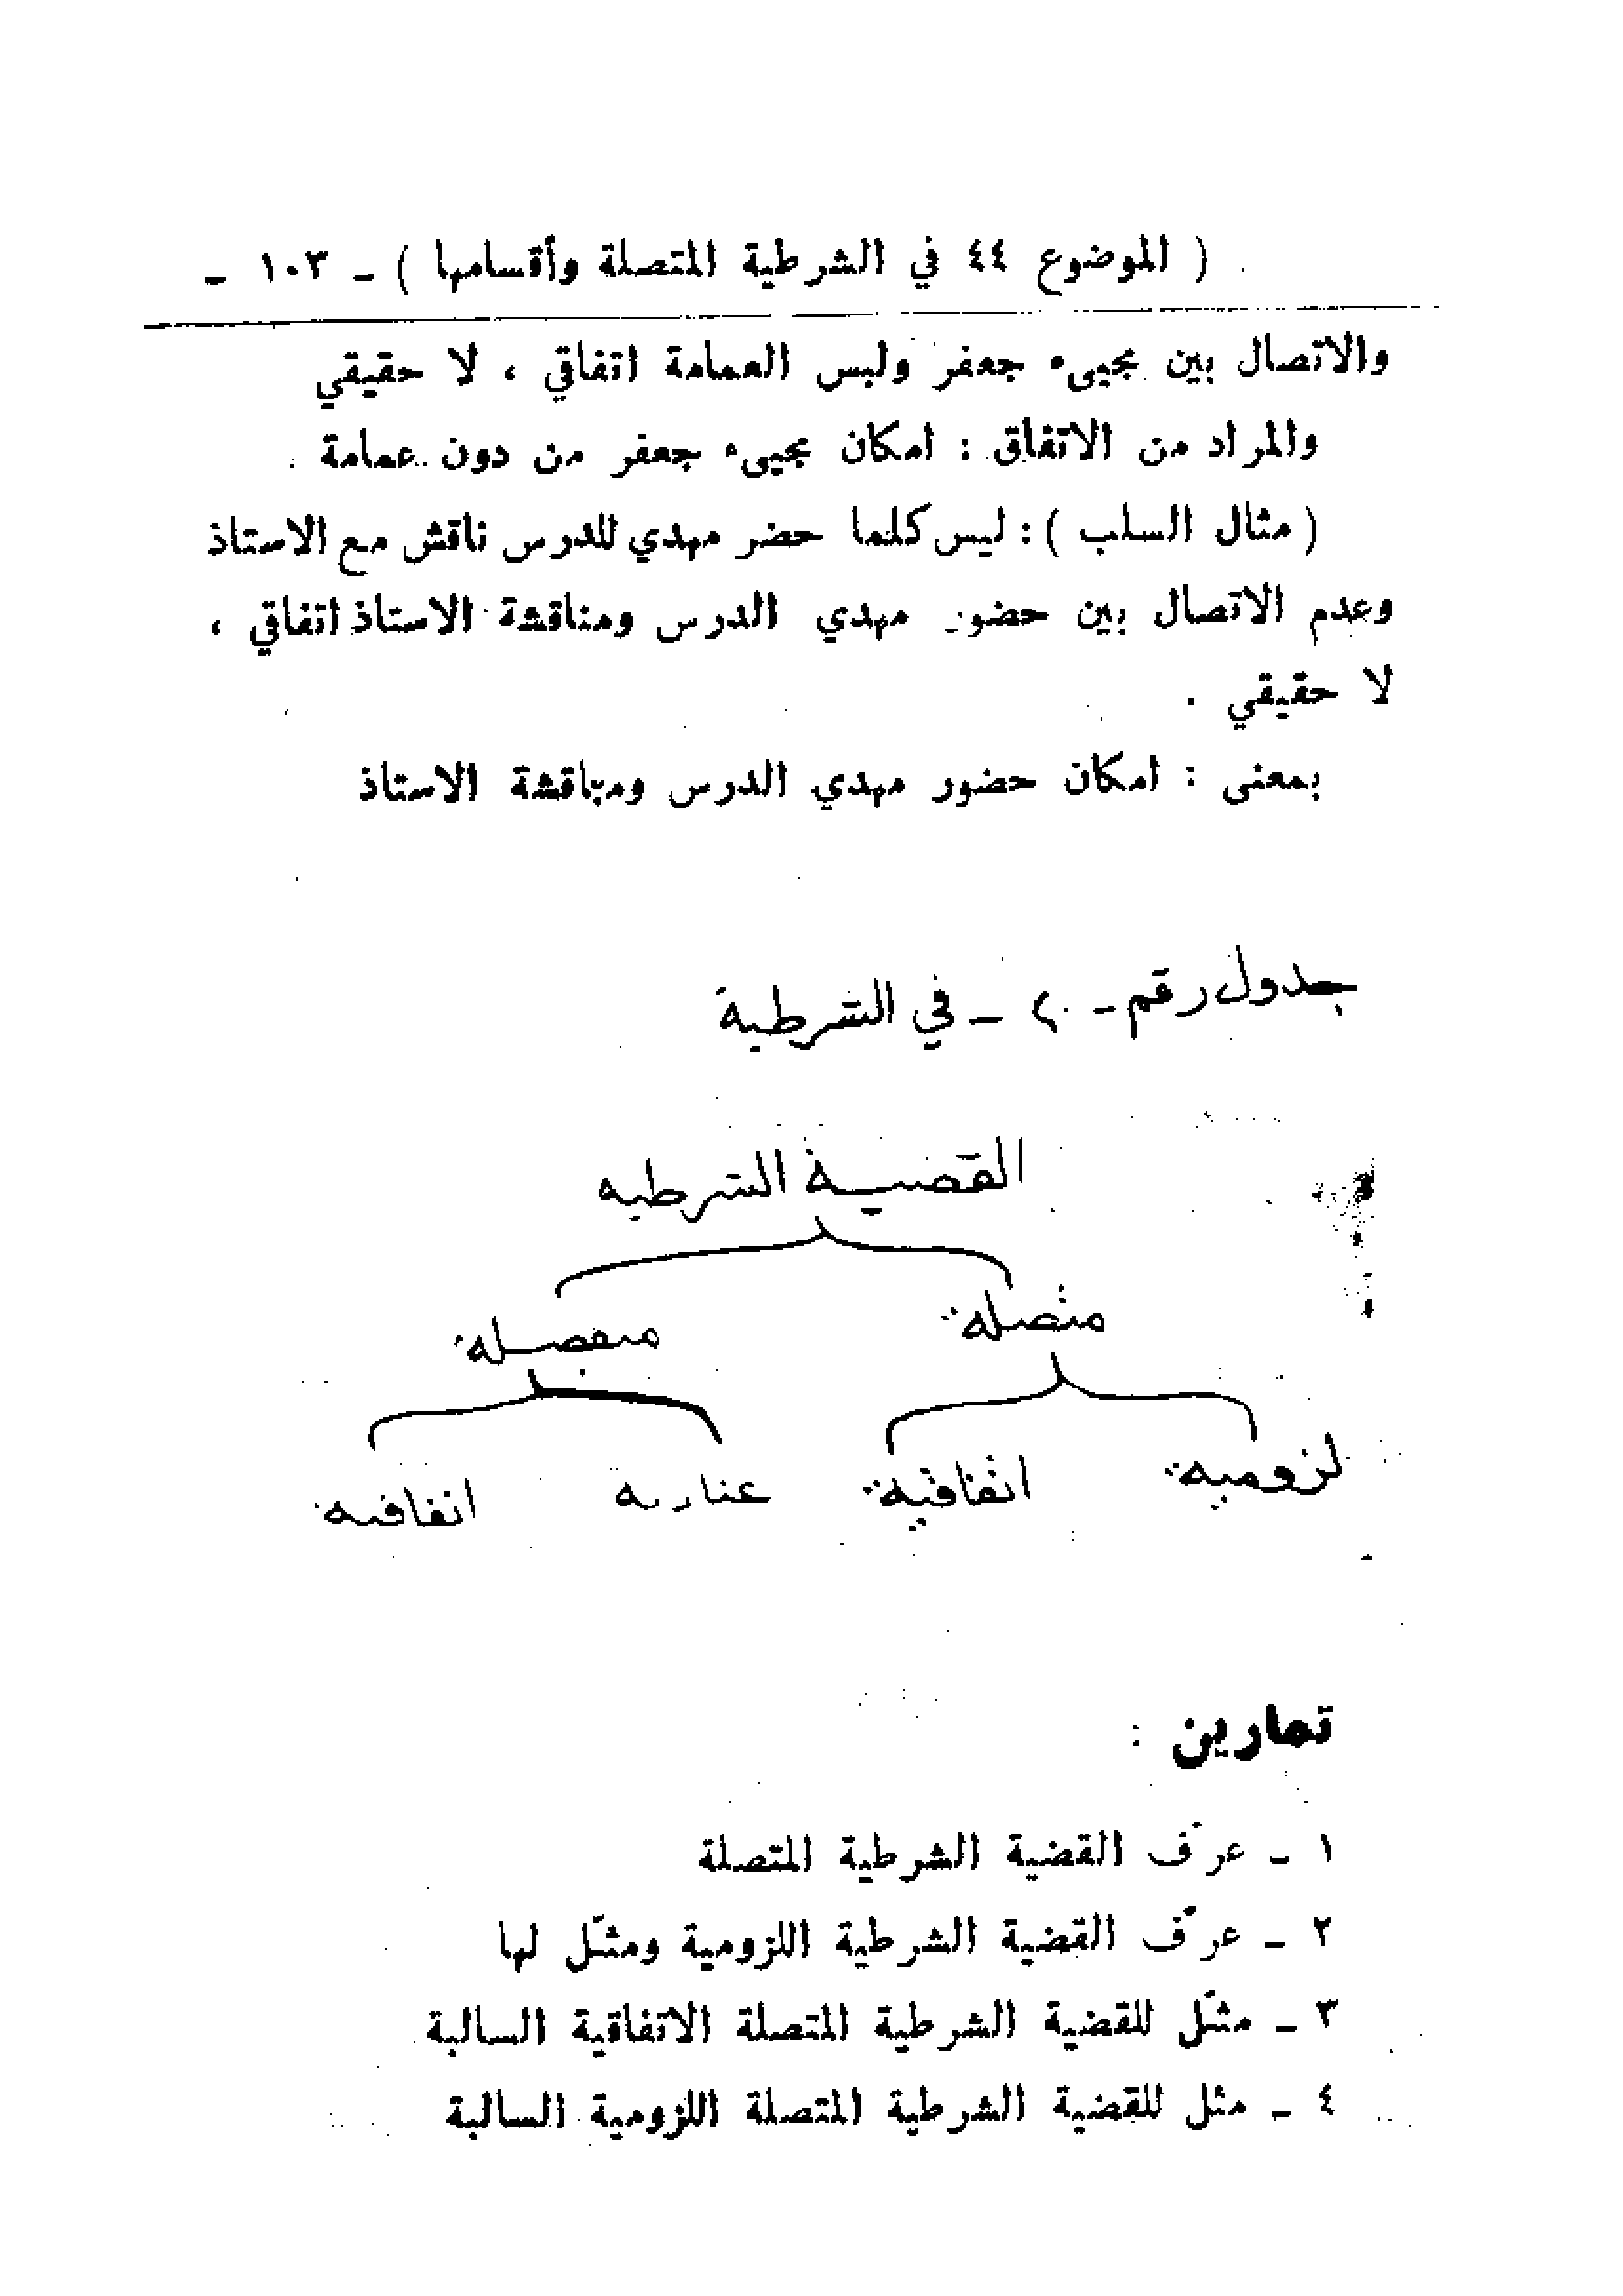 ( الموضوع ٤٤ في الشرطية المتصلة وأقسامها ) ـ ١٠٣ ـ
والاتصال بين مجيىء جعفر ولبس العمامة اتفاقي ، لا حقيقي
والمراد من الاتفاق : امكان مجيىء جعفر من دون عمامة .
( مثال السلب ) : ليس كلما حضر مهدي للدرس ناقش مع الاستاذ
وعدم الاتصال بين حضور مهدي الدرس ومناقشة الاستاذ اتفاقي ،
لا حقيقي .
بمعنى : امكان حضور مهدي الدرس ومناقشة الاستاذ
جدول رقم ـ ٢٠ ـ في الشرطية
القضية الشرطيه
متصلة منفصلة
لزومية اتفاقية عنادية اتفاقية
تمارين :
١ ـ عرّف القضية الشرطية المتصلة
٢ ـ عرّف القضية الشرطية اللزومية ومثّل لها
٣ ـ مثّل للقضية الشرطية المتصلة الاتفاقية السالبة
٤ ـ مثل للقضية الشرطية المتصلة اللزومية السالبة